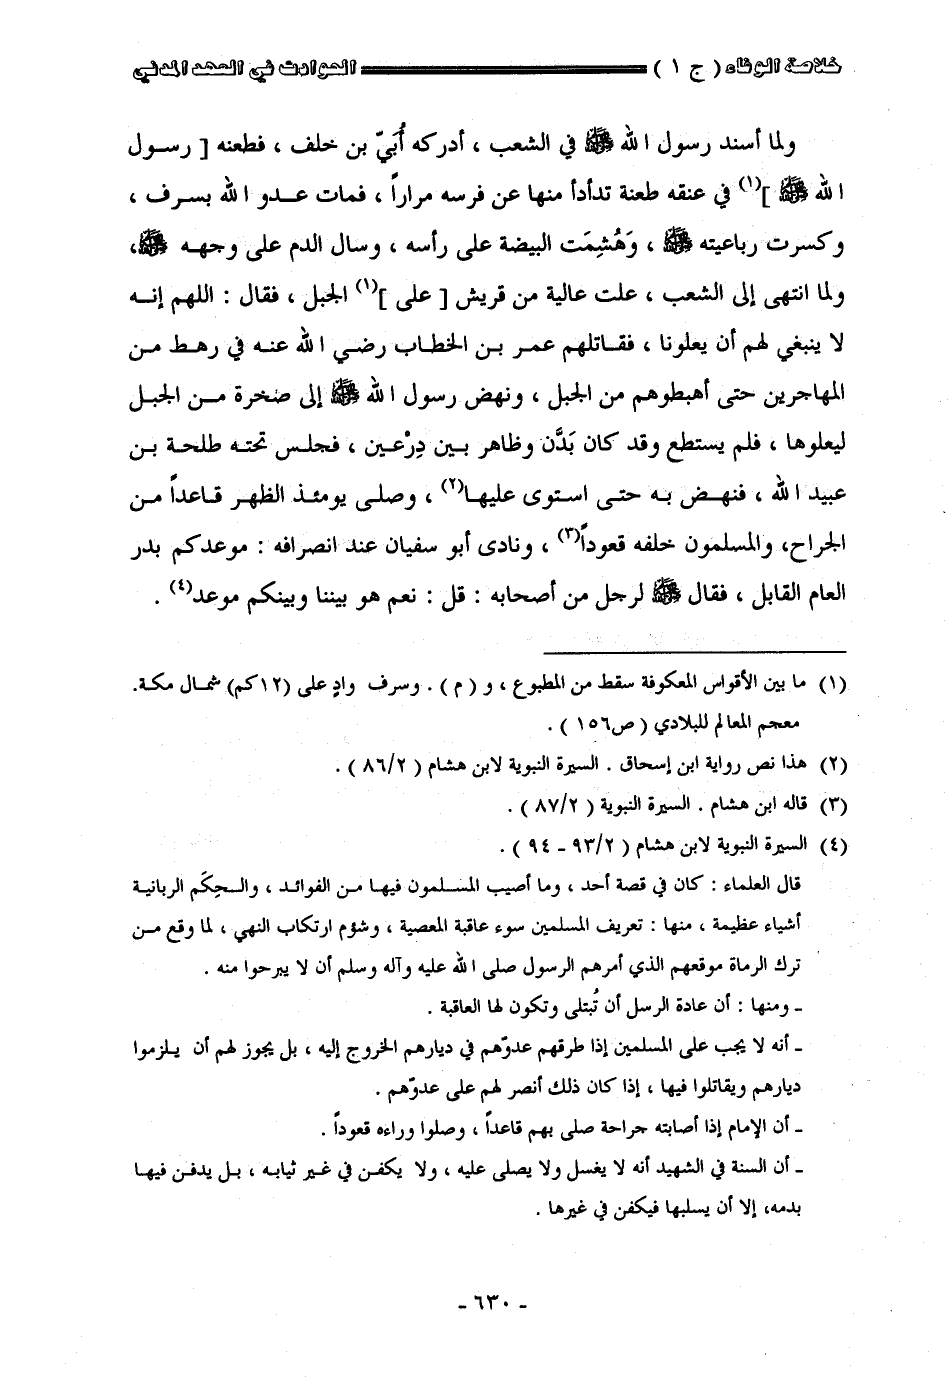 خلاصة الوفاء ( ج ١ ) الحوادث في العهد المدني
ولما أسند رسول الله ﷺ في الشعب ، أدركه أُبَيّ بن خلف ، فطعنه [ رسول
الله ﷺ ](١) في عنقه طعنة تدأدأ منها عن فرسه مراراً ، فمات عدو الله بسرف ،
وكسرت رباعيته ﷺ ، وَهُشِمَت البيضة على رأسه ، وسال الدم على وجهه ﷺ،
ولما انتهى إلى الشعب ، علت عالية من قريش [ على ](١) الجبل ، فقال : اللهم إنه
لا ينبغي لهم أن يعلونا ، فقاتلهم عمر بن الخطاب رضي الله عنه في رهط من
المهاجرين حتى أهبطوهم من الجبل ، ونهض رسول الله ﷺ إلى صخرة من الجبل
ليعلوها ، فلم يستطع وقد كان بَدَّن وظاهر بين دِرْعين ، فجلس تحته طلحة بن
عبيد الله ، فنهض به حتى استوى عليها(٢) ، وصلى يومئذ الظهر قاعداً من
الجراح، والمسلمون خلفه قعوداً(٣) ، ونادى أبو سفيان عند انصرافه : موعدكم بدر
العام القابل ، فقال ﷺ لرجل من أصحابه : قل : نعم هو بيننا وبينكم موعد(٤) .
(١) ما بين الأقواس المعكوفة سقط من المطبوع ، و ( م ) . وسرف وادٍ على (١٢كم) شمال مكة.
معجم المعالم للبلادي ( ص١٥٦ ) .
(٢) هذا نص رواية ابن إسحاق . السيرة النبوية لابن هشام ( ٨٦/٢ ) .
(٣) قاله ابن هشام . السيرة النبوية ( ٨٧/٢ ) .
(٤) السيرة النبوية لابن هشام ( ٩٣/٢ - ٩٤ ) .
قال العلماء : كان في قصة أحد ، وما أصيب المسلمون فيها من الفوائد ، والحِكَم الربانية
أشياء عظيمة ، منها : تعريف المسلمين سوء عاقبة المعصية ، وشؤم ارتكاب النهي ، لما وقع من
ترك الرماة موقعهم الذي أمرهم الرسول صلى الله عليه وآله وسلم أن لا يبرحوا منه .
- ومنها : أن عادة الرسل أن تُبتلى وتكون لها العاقبة .
- أنه لا يجب على المسلمين إذا طرقهم عدوّهم في ديارهم الخروج إليه ، بل يجوز لهم أن يلزموا
ديارهم ويقاتلوا فيها ، إذا كان ذلك أنصر لهم على عدوّهم .
- أن الإمام إذا أصابته جراحة صلى بهم قاعداً ، وصلوا وراءه قعوداً .
- أن السنة في الشهيد أنه لا يغسل ولا يصلى عليه ، ولا يكفن في غير ثيابه ، بل يدفن فيها
بدمه، إلا أن يسلبها فيكفن في غيرها .
- ٦٣٠ -